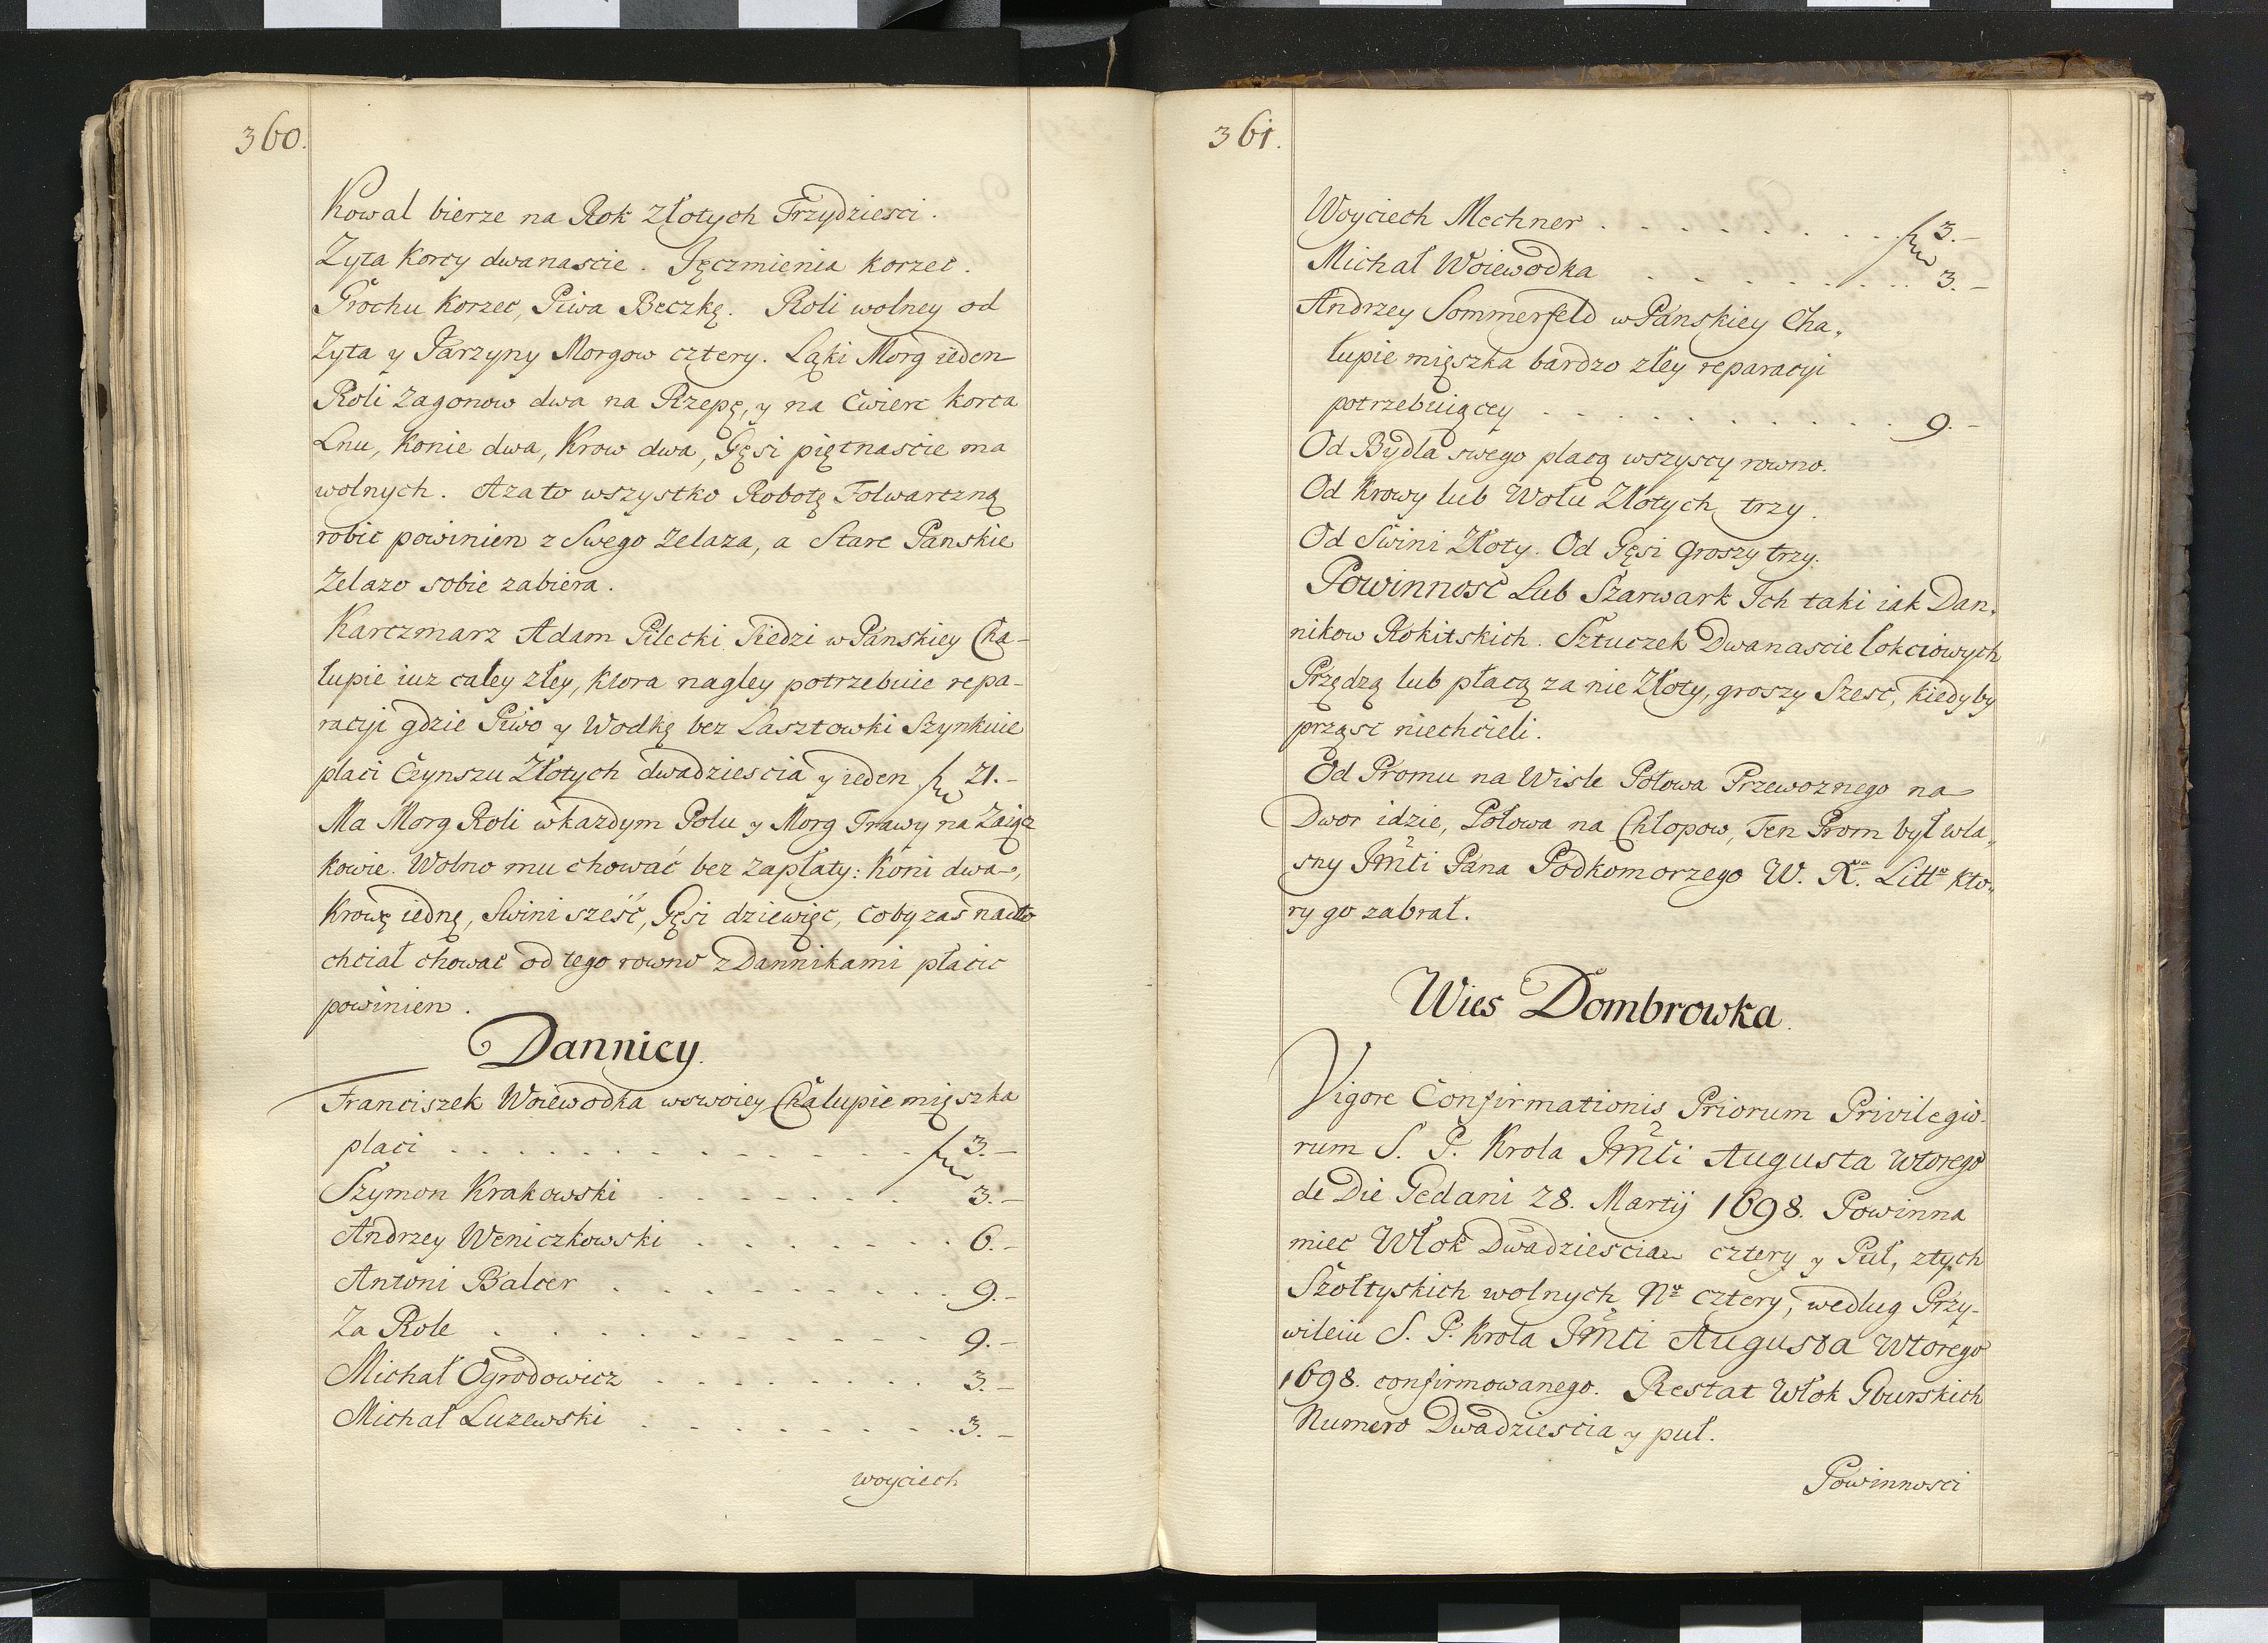 360.
Kowal bierze na Rok Złotych Trzydziesci.
Zyta Korcy dwanascie. Jęczmienia korzec.
Grochu Korzec, Piwa Beczkę. Roli wolney od
Zyta y Jarzyny Morgow cztery. Ląki Morg ieden
Roli Zagonow dwa na Rzepę, y na Cwierc korca
Lnu, Konie dwa, Krow dwa, Gęsi piętnascie ma
wolnych. Azato wszystko Robotę Folwarczną
robic powinien z Swego Zelaza, a Stare Panskie
Zelazo sobie zabiera.
Karczmarz Adam Pilecki Siedzi w Panskiey Cha-
łupie iuz całey złey, ktora nagley potrzebuie repa-
racyi gdzie Piwo y Wodkę bez Lasztowki Szynkuie
placi Czynszu Złotych dwadziescia y ieden fl 21.-
Ma Morg Roli w kazdym Polu y Morg Trawy na Zaięcz
kowie. Wolno mu chować bez zapłaty: Koni dwa,
Krowę iednę, Swini sześć, Gęsi dziewięc, coby zas nadto
chciał chowac od tego rowno z Dannikami płacic
powinien.
Dannicy.
Franciszek Woiewodka wswoiey Chałupie mięszka
placi . . . . . . . . . . fl 3.-
Szymon Krakowski . . . . . . . 3.-
Andrzey Weniczkowski . . . . . . . 6.-
Antoni Balcer . . . . . . . . . 9.-
Za Role . . . . . . . . . . 9.-
Michał Ogrodowicz . . . . . . . . 3.-
Michał Luzewski . . . . . . . . 3.-
woyciech
361.
Woyciech Mechner . . . . . . . . fl 3.-
Michał Woiewodka . . . . . . . . 3.-
Andrzey Sommerfeld w Panskiey Cha„
łupie mięszka bardzo złey reparacyi
potrzebuiącey . . . . . . . . . . 9.-
Od Bydła swego placą wszyscy rowno.
Od Krowy lub Wołu Złotych trzy.
Od Swini Złoty. Od Gęsi Groszy trzy.
Powinnosc Lub Szarwark Ich taki iak Dan„
nikow Rokitskich. Sztuczek Dwanascie łokciowych
Przędzą lub płacą za nie Złoty, groszy Szesc, kiedyby
prząsc niechcieli.
Od Promu na Wisle Połowa Przewoznego na
Dwor idzie, Połowa na Chłopow, Ten Prom był wła„
sny Jmći Pana Podkomorzego W. X. Litt. kto„
ry go zabrał.
Wies Dombrowka.
Vigore Confirmationis Priorum Privilegio-
rum S. P. Krola Jmći Augusta Wtorego
de Die Gedani 28. Martij 1698. Powinna
miec Włok Dwadziescia cztery y Puł, ztych
Szołtyskich wolnych No cztery, według Przy-
wileiu S. P. Krola Jmći Augusta Wtorego
1698. confirmowanego. Restat Włok Gburskich
Numero Dwadziescia y puł.
Powinnosci